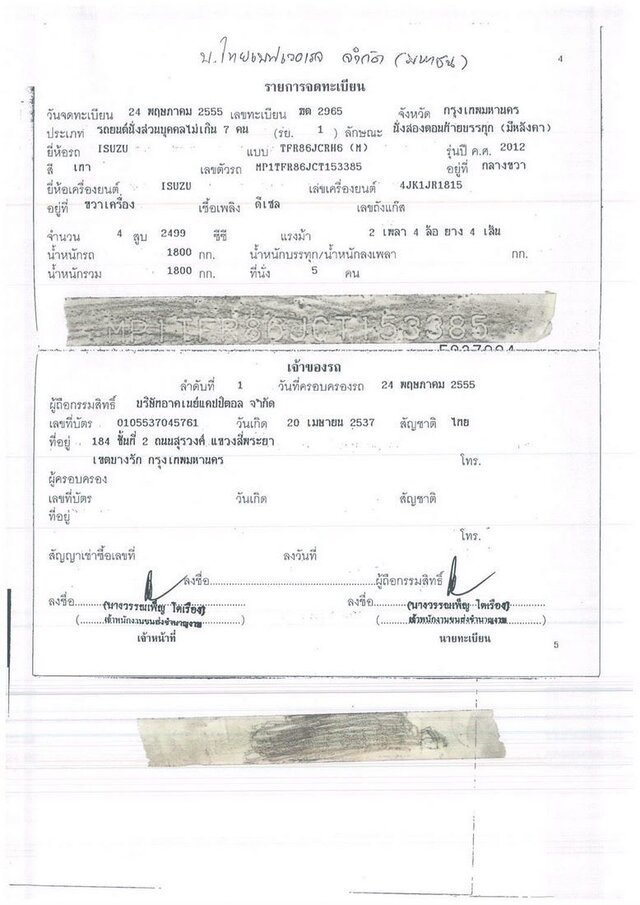 บ.ไทยเบฟเวอเรจ จำกัด (มหาชน)
4
รายการจดทะเบียน
วันจดทะเบียน 24 พฤษภาคม 2555 เลขทะเบียน ฆต 2965 จังหวัด กรุงเทพมหานคร
ประเภท รถยนต์นั่งส่วนบุคคลไม่เกิน 7 คน (รย. 1 ) ลักษณะ นั่งสองตอนท้ายบรรทุก (มีหลังคา)
ยี่ห้อรถ ISUZU แบบ TFR86JCRH6 (M) รุ่นปี ค.ศ. 2012
สี เทา เลขตัวรถ MP1TFR86JCT153385 อยู่ที่ กลางขวา
ยี่ห้อเครื่องยนต์ ISUZU เลขเครื่องยนต์ 4JK1JR1815
อยู่ที่ ขวาเครื่อง เชื้อเพลิง ดีเซล เลขถังแก๊ส
จำนวน 4 สูบ 2499 ซีซี แรงม้า 2 เพลา 4 ล้อ ยาง 4 เส้น
น้ำหนักรถ 1800 กก. น้ำหนักบรรทุก/น้ำหนักลงเพลา กก.
น้ำหนักรวม 1800 กก. ที่นั่ง 5 คน
MP1TFR86JCT153385
เจ้าของรถ
ลำดับที่ 1 วันที่ครอบครองรถ 24 พฤษภาคม 2555
ผู้ถือกรรมสิทธิ์ บริษัทอาคเนย์แคปปิตอล จำกัด
เลขที่บัตร 0105537045761 วันเกิด 20 เมษายน 2537 สัญชาติ ไทย
ที่อยู่ 184 ชั้นที่ 2 ถนนสุรวงศ์ แขวงสี่พระยา
เขตบางรัก กรุงเทพมหานคร โทร.
ผู้ครอบครอง
เลขที่บัตร วันเกิด สัญชาติ
ที่อยู่
โทร.
สัญญาเช่าซื้อเลขที่ ลงวันที่
ลงชื่อ ผู้ถือกรรมสิทธิ์
ลงชื่อ (นางวรรณเพ็ญ โตเรือง) ลงชื่อ (นางวรรณเพ็ญ โตเรือง)
(เจ้าพนักงานขนส่งชำนาญงาน) (เจ้าพนักงานขนส่งชำนาญงาน)
เจ้าหน้าที่ นายทะเบียน
5